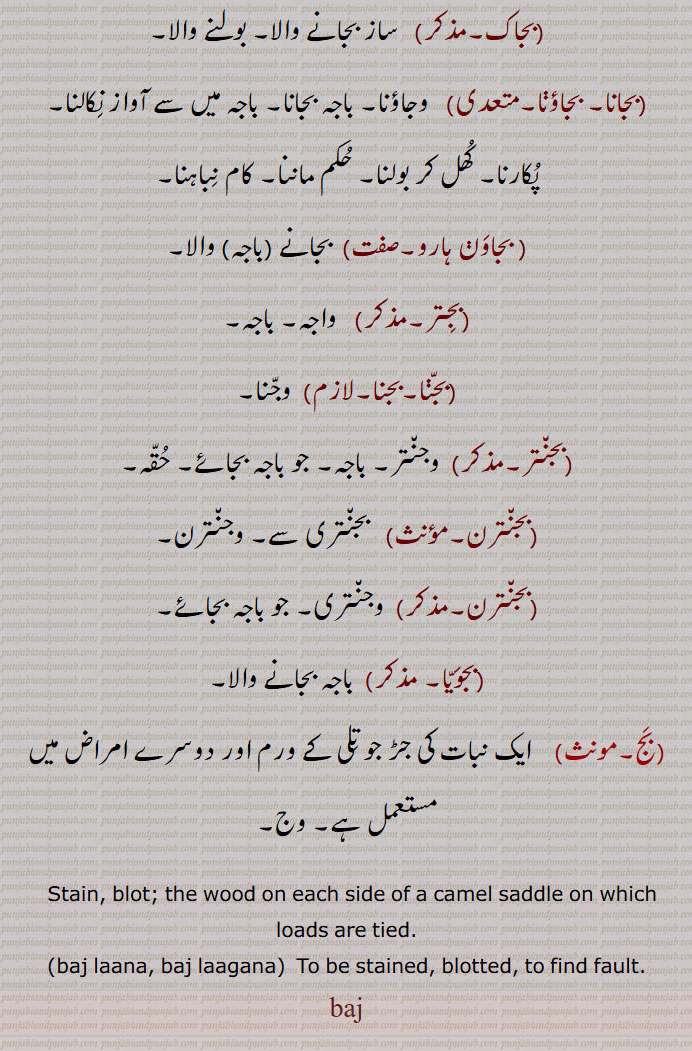 (بجاک۔مذکر) ساز بجانے والا۔ بولنے والا۔
(بجانا۔ بجاؤنا۔متعدی) وجاؤنا۔ باجہ بجانا۔ باجہ میں سے آواز نِکالنا۔
پُکارنا۔ کُھل کر بولنا۔ حُکم ماننا۔ کام نِباہنا۔
( بجاوَن ہارو۔صفت) بجانے (باجہ) والا۔
(بجِتر۔مذکر) واجہ۔ باجہ۔
(بجّنا۔بجنا۔لازم) وجّنا۔
(بجنّتر۔مذکر) وجنّتر۔ باجہ۔ جو باجہ بجائے۔ حُقّہ۔
(بجنّترن۔مؤنث) بجنّتری سے۔ وجنّترن۔
(بجنّترن۔مذکر) وجنّتری۔ جو باجہ بجائے۔
(بجوَیّا۔ مذکر) باجہ بجانے والا۔
(بَجَ۔مونث) ایک نبات کی جڑ جو تِلی کے ورم اور دوسرے امراض میں
مستعمل ہے۔ وج۔
Stain, blot; the wood on each side of a camel saddle on which
loads are tied.
(baj laana, baj laagana) To be stained, blotted, to find fault.
baj